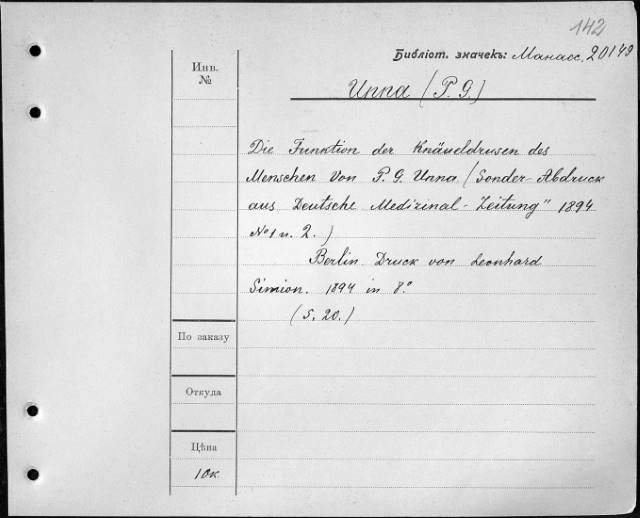 142
Библіот. значекъ: Манасс. 20149
Инв.
№
Unna (P. G.)
Die Funktion der Knäueldrusen des
Menschen von P. G. Unna (Sonder-Abdruck
aus Deutsche Medizinal-Zeitung" 1894
No 1 u. 2.)
Berlin Druck von Leonhard
Simion. 1894 in 8.°
(S. 20.)
По заказу
Откуда
Цѣна
10к